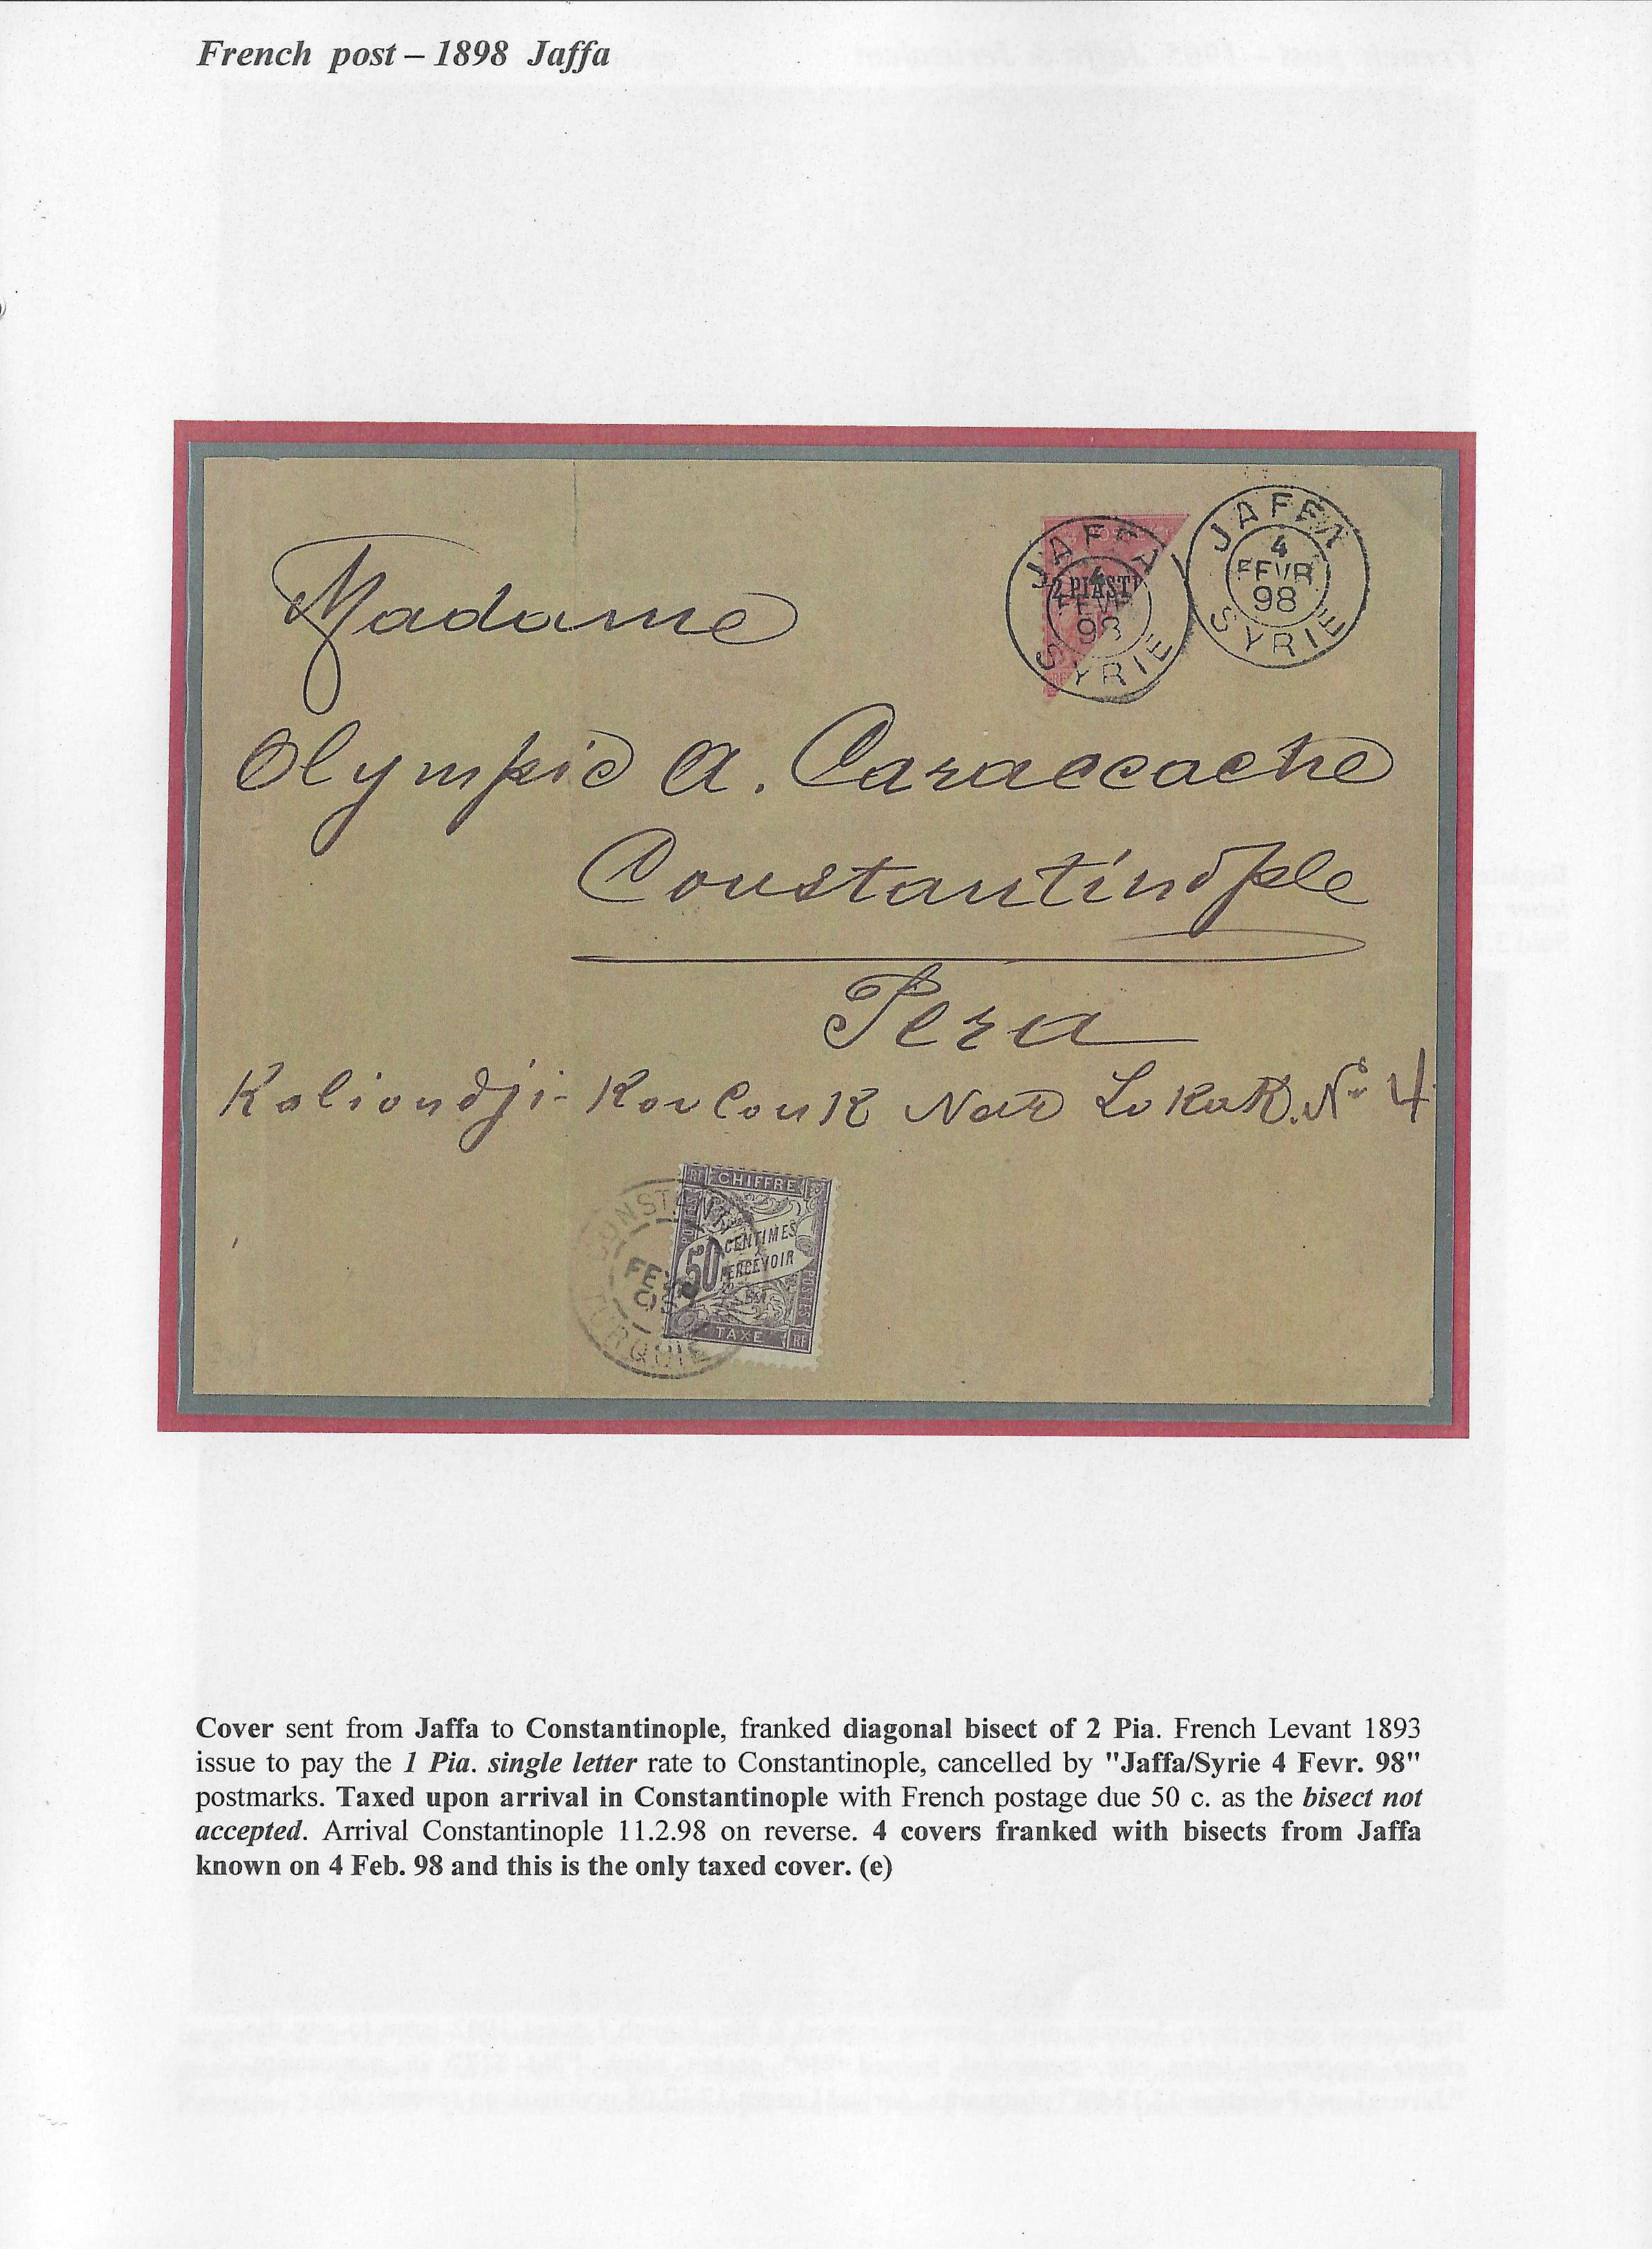 French post – 1898 Jaffa
JAFFA
4
FEVR
98
SYRIE
2 PIAST
JAFFA
4
FEVR
98
SYRIE
Madame
Olympie A. Caraccache
Constantinople
Pera
Kaliondji-Koulouk Nar Lokak. No 4
RF CHIFFRE
50 CENTIMES
PERCEVOIR
POSTES
TAXE RF
CONSTANT
FEVR
98
TURQUIE
Cover sent from Jaffa to Constantinople, franked diagonal bisect of 2 Pia. French Levant 1893
issue to pay the 1 Pia. single letter rate to Constantinople, cancelled by "Jaffa/Syrie 4 Fevr. 98"
postmarks. Taxed upon arrival in Constantinople with French postage due 50 c. as the bisect not
accepted. Arrival Constantinople 11.2.98 on reverse. 4 covers franked with bisects from Jaffa
known on 4 Feb. 98 and this is the only taxed cover. (e)